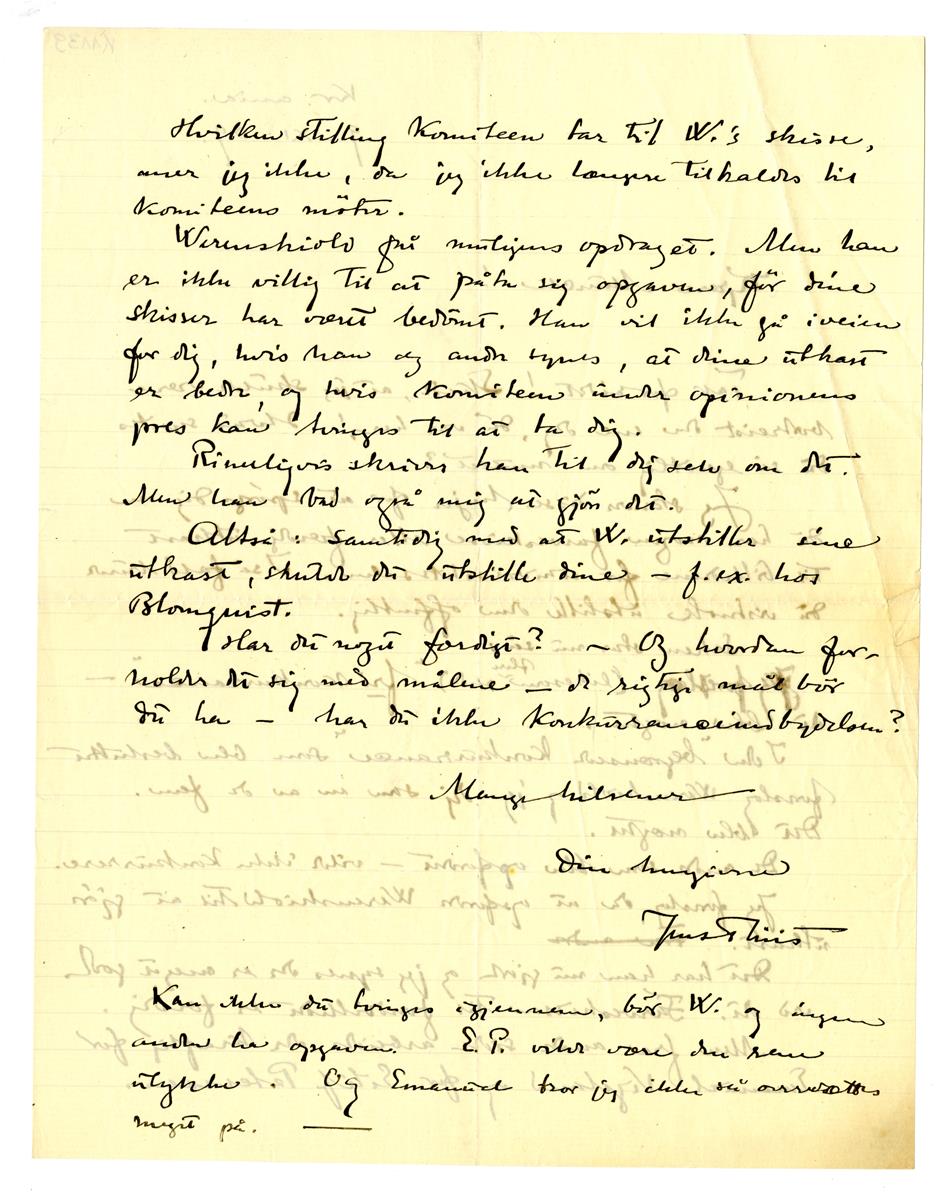 Hvilken stilling Komiteen tar til W.'s skisse,
aner jeg ikke, da jeg ikke længere tilkaldes til
Komiteens möter.
Werenskiold får muligens opdraget. Men han
er ikke villig til at påta sig opgaven, för dine
skisser har været bedömt. Han vil ikke gå iveien
for dig, hvis han og andre synes, at dine utkast
er bedre, og hvis Komiteen under opinionens
pres kan tvinges til at ta dig.
Rimeligvis skriver han til dig selv om det.
Men han bad også mig at gjöre det.
Altså: samtidig med at W. utstiller sine
utkast, skulde du utstille dine – f.ex. hos
Blomquist.
Har du noget færdigt? – Og hvordan for-
holder det sig med målene – de rigtige mål bör
du ha – har du ikke Konkurranceindbydelsen?
Mange hilsener
Din hengivne
Jens Thiis
Kan ikke du tvinges igjennem, bör W. og ingen
anden ha opgaven. E. P. vilde være den rene
ulykke. Og Emanuel tror jeg ikke så
meget på. —